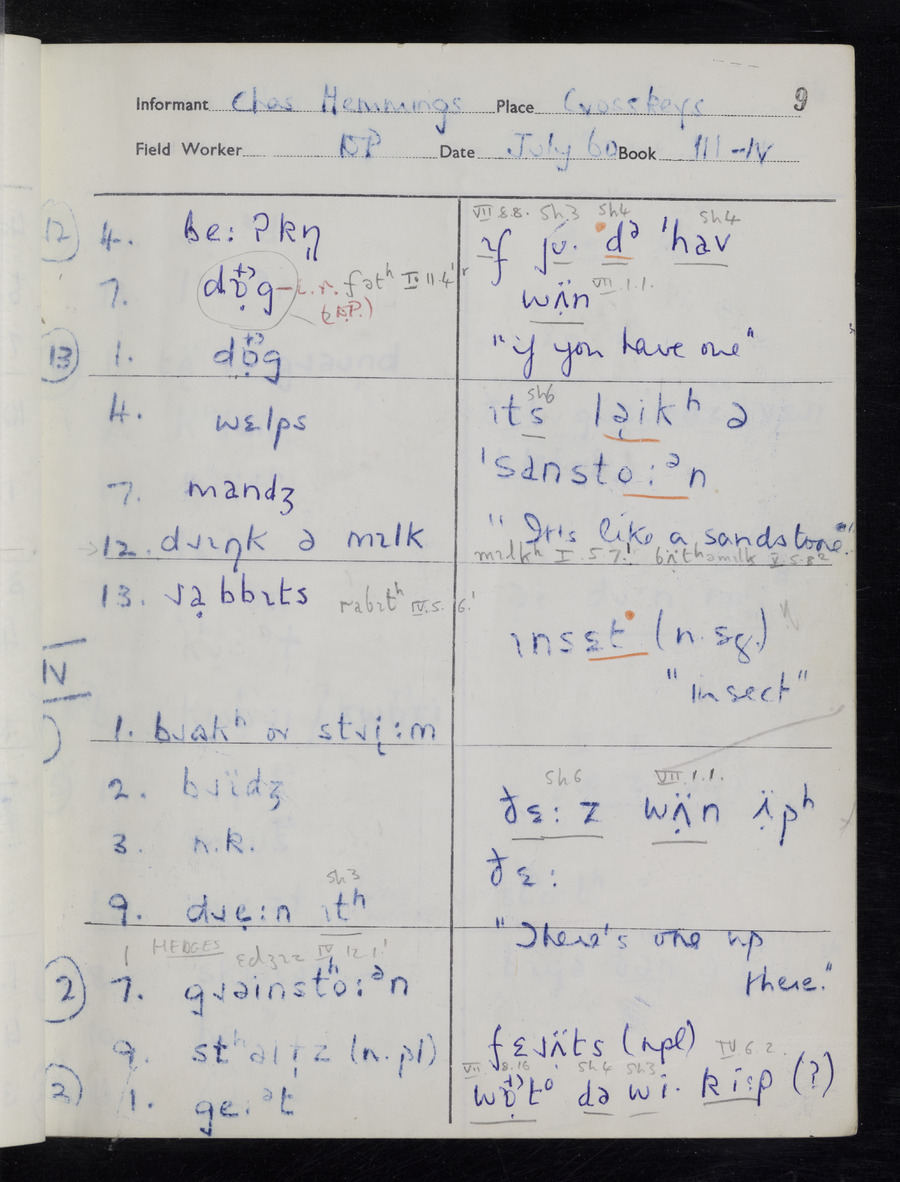 Informant Chas Hemmings Place Crosskeys 9
Field Worker DP Date July 60 Book III-IV
12 4. be:ʔkŋ̍
7. dɒ̣g i.r. fətʰ IV 11.4
(DP.)
13 1. dɒ̣g
4. wɛlps
7. mandʒ
12. dɹɪŋk ə mɪlk
13. ɹạbbɪts rabɪtʰ IV.5.6.
IV
1. bɹɑkʰ or stɹi̜:m
2. bɹïdʒ
3. n.k.
9. dɹẹ:n ɪtʰ
sh3
1 HEDGES ɛdʒɪz IV 12.1
2 7. gɹəinstö:ᵊn
9. stʰəiɪz (n.pl)
1. gei.ᵊt
VII 8.8. Sh.3 Sh4 Sh4
ɪf ju· dᵊ 'hav
wʌ̣̈n VII.1.1.
"if you have one"
sh6
ɪts lə̣ikʰ ə
'sansto:ᵊn
"It's like a sandstone"
mɪlkʰ I.5.7. bɪ̈tʰəmɪlk V.5.8²
ɪnsɛt (n.sg.)
"insect"
Sh6 VII.1.1.
ðɛ:z wʌ̣̈n ʌ̣̈pʰ
ðɛ:
"There's one up
there."
fɛɹʌ̈ts (npl) IV 6.2.
VII 8.16 Sh4 Sh3
wɒ̣t° də wi· ki:p (?)